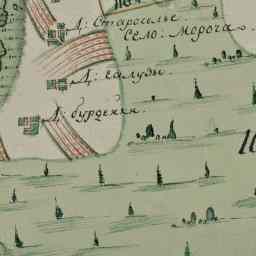 Д: Старосилье
Село: Мороча
Д: Галузы.
Д: бурдейки.